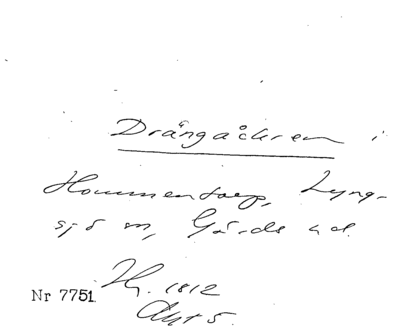 Drängaåkren i
Hommentorp, Lyng-
sjö sn, Gärds hd.
Nr 7751. Hy. 1812
Akt 5.